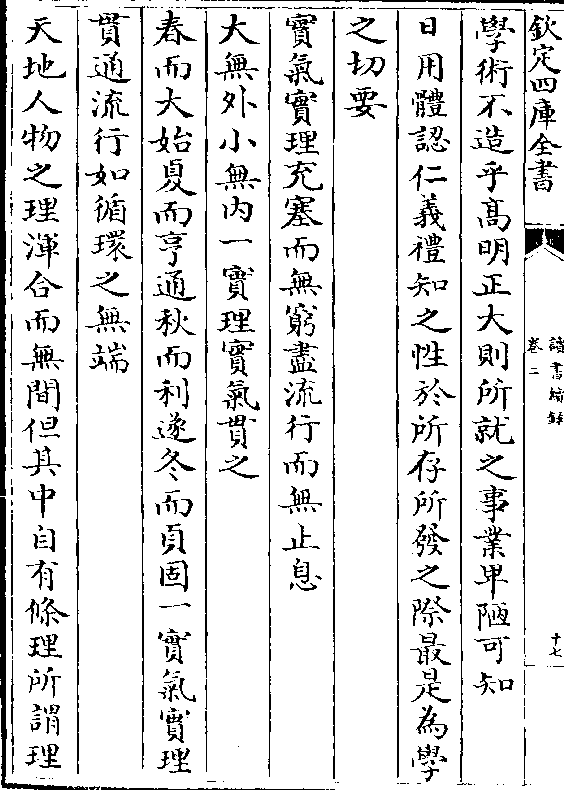 欽定四庫全書
讀書續錄
卷二
十七
學術不造乎髙明正大則所就之事業卑陋可知
日用體認仁義禮知之性於所存所發之際最是為學
之切要
實氣實理充塞而無窮盡流行而無止息
大無外小無内一實理實氣貫之
春而大始夏而亨通秋而利遂冬而貞固一實氣實理
貫通流行如循環之無端
天地人物之理渾合而無間但其中自有條理所謂理